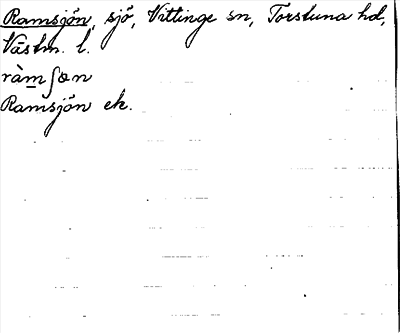 Ramsjön, sjö, Vittinge sn, Torstuna hd,
Västm. l.
ràmʃɷn
Ramsjön ek.